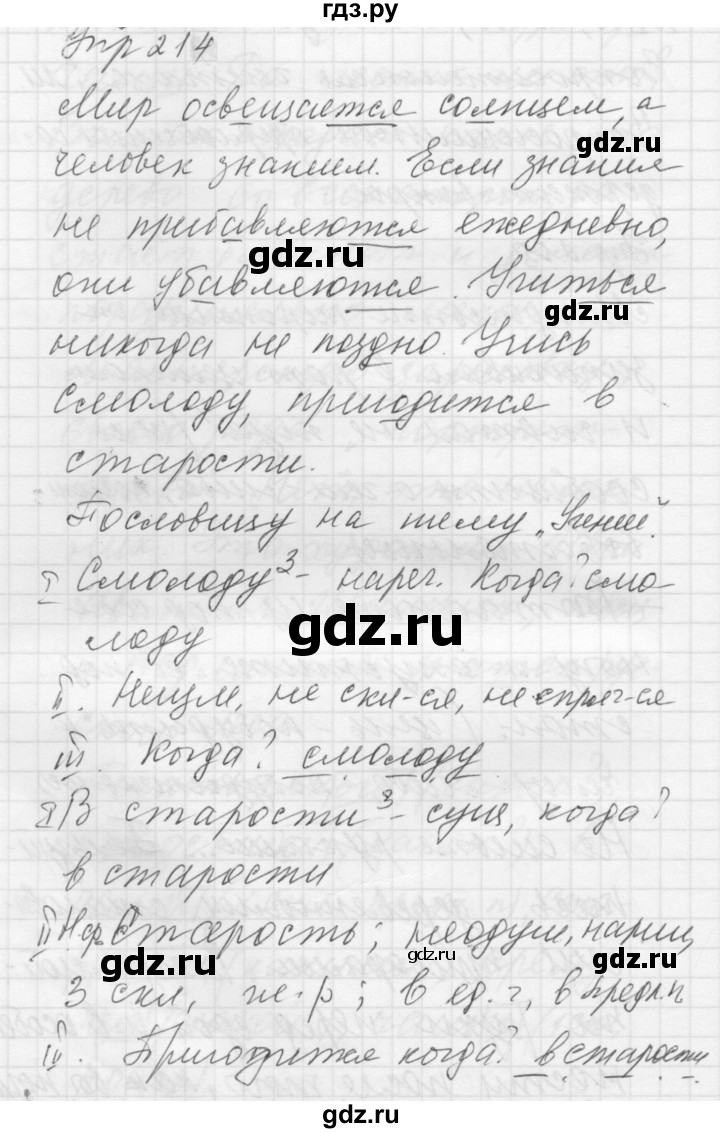 гдз.ру
Упр 214
Мир освещается солнцем, а
человек знанием. Если знания
не прибавляются ежедневно,
gdz.ru
gdz.ru
они убавляются. Учиться
gdz.ru
никогда не поздно. Учись
смолоду, пригодится в
старости.
Пословицу на тему „Учение".
I Смолоду³ - нареч. Когда? смо
gdz.ru
лоду
II. Неизм, не скл-ся, не спряг-ся
III. Когда? смолоду
I В старости³ - сущ, когда?
в старости
II Н.ф. Старость; неодуш, нариц
gdz.ru
gdz.ru
3 скл, ж.р; в ед.ч, в предл.п
III. Пригодится когда? в старости
gdz.ru
gdz.ru